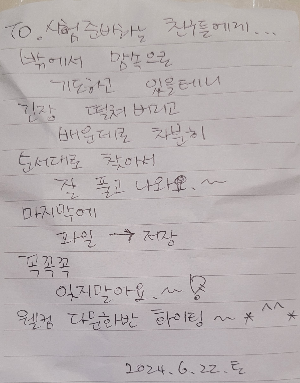 TO. 시험준비하는 친구들에게...
밖에서 맘속으로
기도하고 있을테니
긴장 떨쳐버리고
배운데로 차분히
순서대로 찾아서
잘 풀고 나와요.~
마지막에
파일 → 저장
꼭꼭꼭
잊지말아요.~!
웰컴 다문화반 화이팅~*^^*
2024.6.22.토